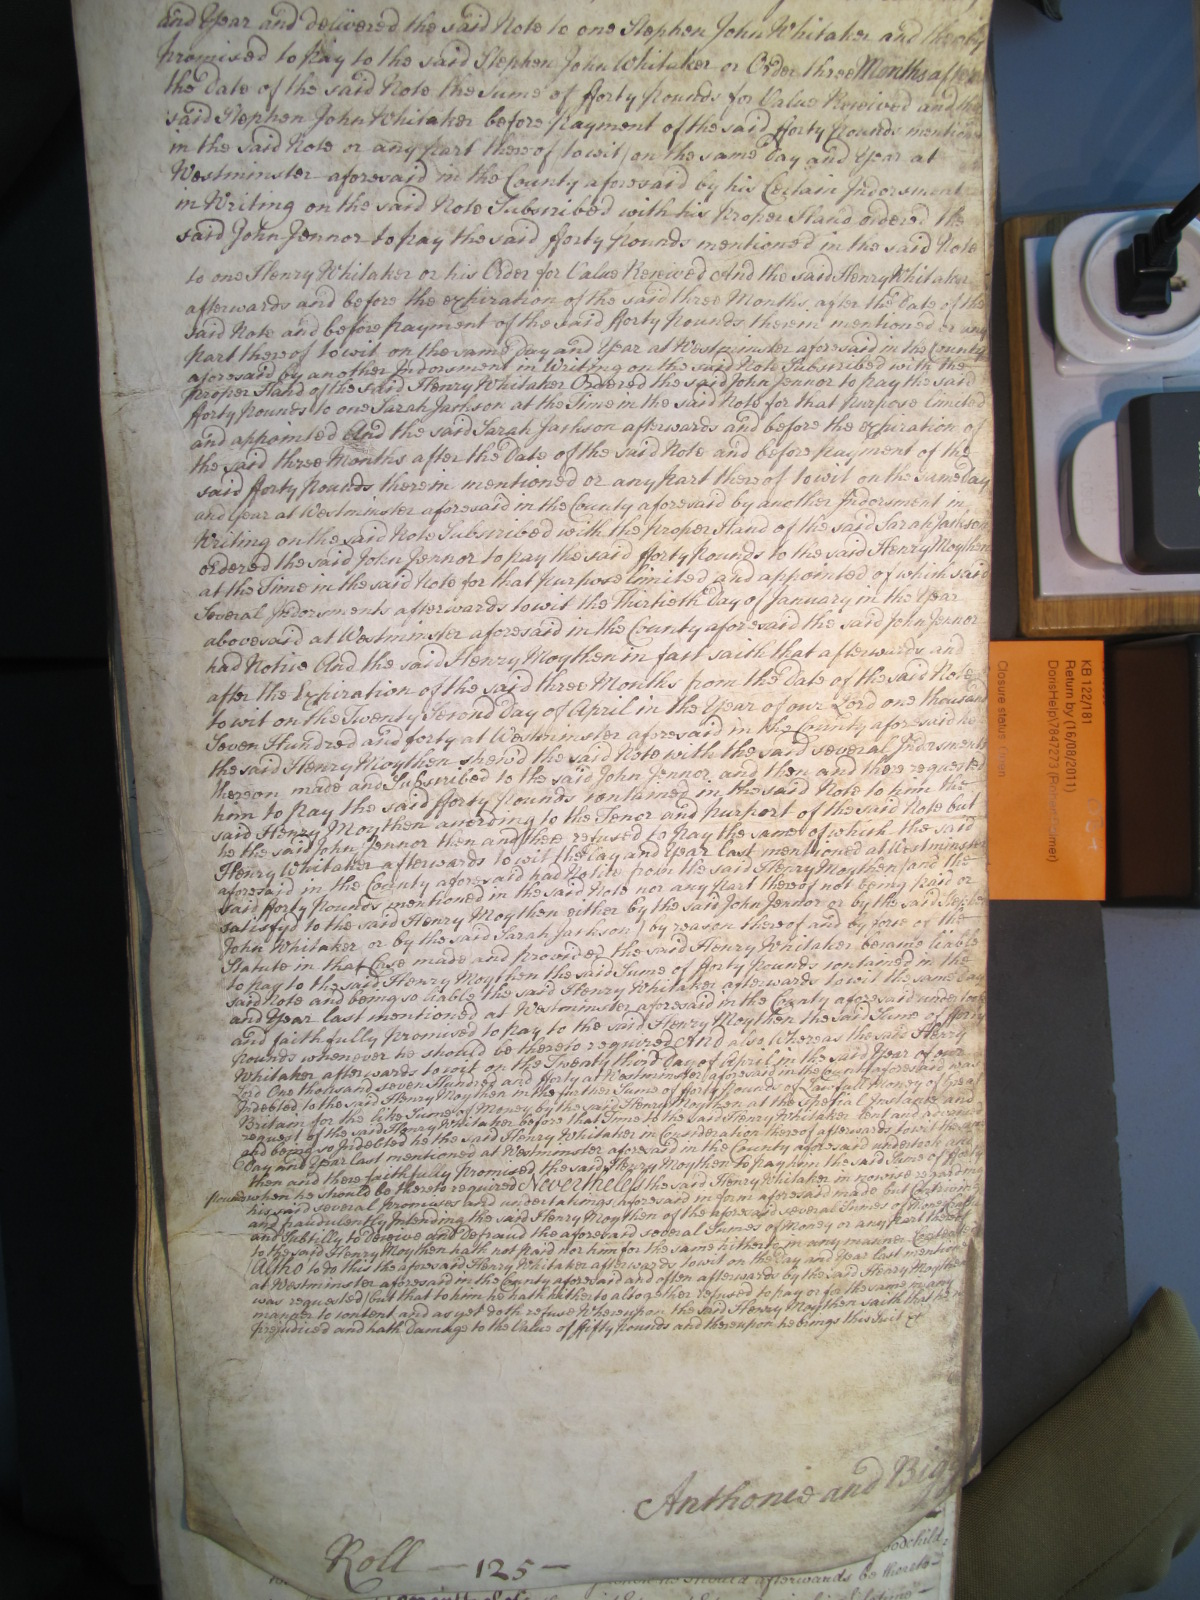 and Year and delivered the said Note to one Stephen John Whitaker and thereby
promised to pay to the said Stephen John Whitaker or Order three Months after
the Date of the said Note the Sume of fforty Pounds for Value Received and the
said Stephen John Whitaker before Payment of the said fforty Pounds mentioned
in the said Note or any Part thereof to wit on the same Day and Year at
Westminster aforesaid in the County aforesaid by his Certain Indorsment
in Writing on the said Note Subscribed with his Proper Hand ordered the
said John Jennor to pay the said fforty Pounds mentioned in the said Note
to one Henry Whitaker or his Order for Value Received And the said Henry Whitaker
afterwards and before the expiration of the said three Months after the Date of the
said Note and before payment of the said fforty Pounds therein mentioned or any
part thereof to wit on the same Day and Year at Westminster aforesaid in the County
aforesaid by another Indorsment in Writing on the said Note Subscribed with the
proper Hand of the said Henry Whitaker Ordered the said John Jennor to pay the said
fforty Pounds to one Sarah Jackson at the Time in the said Note for that Purpose limited
and appointed And the said Sarah Jackson afterwards and before the expiration of
the said three Months after the Date of the said Note and before payment of the
said fforty Pounds therein mentioned or any Part thereof to wit on the same Day
and Year at Westminster aforesaid in the County aforesaid by another Indorsment in
Writing on the said Note Subscribed with the Proper Hand of the said Sarah Jackson
ordered the said John Jennor to pay the said fforty Pounds to the said Henry Moythen
at the Time in the said Note for that Purpose limited and appointed of which said
Several Indorsments afterwards to wit the Thirtieth Day of January in the Year
abovesaid at Westminster aforesaid in the County aforesaid the said John Jennor
had Notice And the said Henry Moythen in fact saith that afterwards and
after the Expiration of the said three Months from the Date of the said Note
to wit on the Twenty Second Day of April in the Year of our Lord one thousand
Seven Hundred and forty at Westminster aforesaid in the County aforesaid he
the said Henry Moythen shewed the said Note with the said several Indorsments
thereon made and Subscribed to the said John Jennor and then and there requested
him to pay the said fforty Pounds contained in the said Note to him the
said Henry Moythen according to the Tenor and Purport of the said Note but
he the said John Jennor then and there refused to pay the same of which the said
Henry Whitaker afterwards to wit the Day and Year last mentioned at Westminster
aforesaid in the County aforesaid had Notice from the said Henry Moythen (and the
said fforty Pounds mentioned in the said Note nor any Part thereof not being paid or
satisfyd to the said Henry Moythen either by the said John Jennor or by the said Stephen
John Whitaker or by the said Sarah Jackson) by reason thereof and by force of the
Statute in that Case made and provided the said Henry Whitaker became liable
to pay to the said Henry Moythen the said Sume of fforty Pounds contained in the
said Note and being so liable the said Henry Whitaker afterwards to wit the same Day
and Year last mentioned at Westminster aforesaid in the County aforesaid undertook
and faithfully Promised to pay to the said Henry Moythen the said Sume of fforty
Pounds whenever he should be thereto required And also Whereas the said Henry
Whitaker afterwards to wit on the Twenty third Day of April in the said Year of our
Lord One thousand seven Hundred and forty at Westminster aforesaid in the County aforesaid was
Indebted to the said Henry Moythen in the further Sume of fforty Pounds of Lawfull Money of Great
Britain for the like Sume of Money by the said Henry Moythen at the Special Instance and
request of the said Henry Whitaker before that Time to the said Henry Whitaker lent and advanced
and being so Indebted he the said Henry Whitaker in Consideration thereof afterwards to wit the same
Day and Year last mentioned at Westminster aforesaid in the County aforesaid undertook and
then and there faithfully Promised the said Henry Moythen to pay him the said Sume of fforty
Pounds when he should be thereto required Nevertheless the said Henry Whitaker in nowise regarding
his said several Promises and undertakings aforesaid in form aforesaid made but Contriving
and fraudulently Intending the said Henry Moythen of the aforesaid several Sumes of Money
and Subtilly to deceive and Defraud the aforesaid several Sumes of Money or any Part thereof
to the said Henry Moythen hath not paid nor him for the same hitherto in any manner Contented
Altho to do this the aforesaid Henry Whitaker afterwards to wit on the Day and Year last mentioned
at Westminster aforesaid in the County aforesaid and often afterwards by the said Henry Moythen
was requested) but that to him he hath hitherto altogether refused to pay or for the same in any
manner to content and as yet doth refuse Whereupon the said Henry Moythen saith that he is
prejudiced and hath Damage to the Value of fifty Pounds and thereupon he brings this Suit &c
Anthonie and Bigg
Roll 125
KB 122/181
Return by (16/08/2011)
Closure status: Open